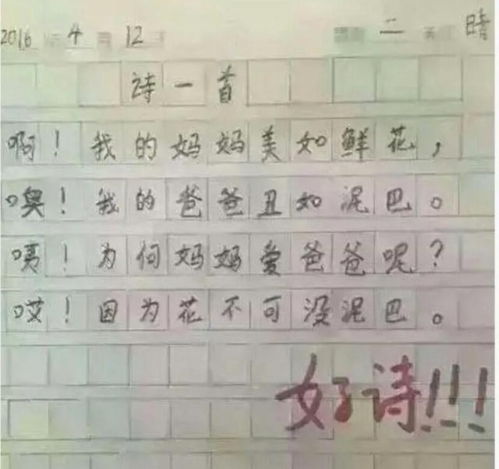 2016 年 4 月 12 日 星期 二 天气 晴
诗一首
啊！我的妈妈美如鲜花，
噢！我的爸爸丑如泥巴。
咦！为何妈妈爱爸爸呢？
哎！因为花不可没泥巴。
好诗!!!